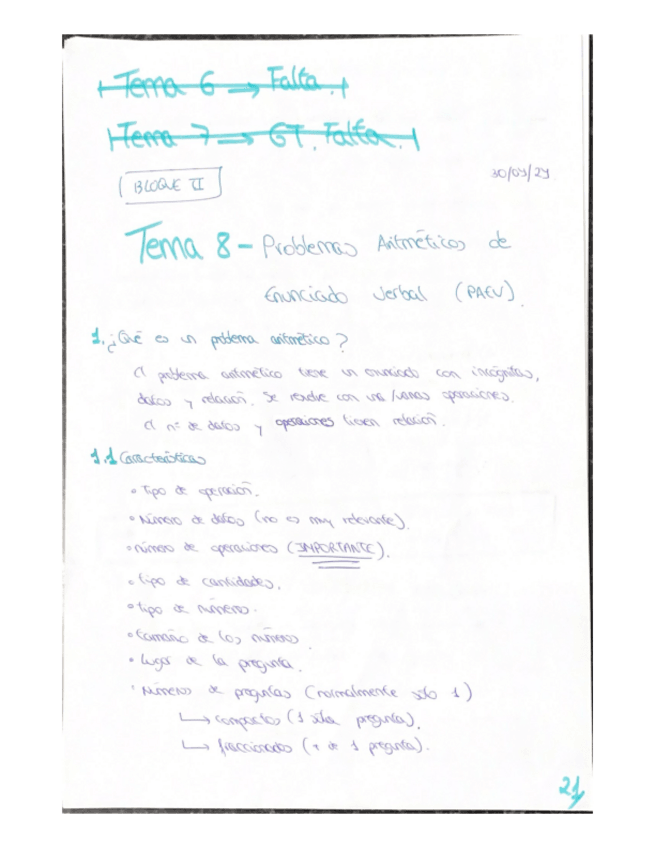 Tema 6 → Falta.
Tema 7 → GT. Falta.
BLOQUE II
Tema 8 - Problemas Aritméticos de
Enunciado verbal (PAEV).
1. ¿Qué es un problema aritmético?
El problema aritmético tiene un enunciado con incógnitas,
datos y relación. Se resuelve con una/varias operaciones.
El nº de datos y operaciones tienen relación.
1.1 Características
• Tipo de operación.
• Número de datos (no es muy relevante).
• número de operaciones (IMPORTANTE).
• tipo de cantidades.
• tipo de número.
• tamaño de los números.
• lugar de la pregunta.
• Números de preguntas (normalmente sólo 1)
↳ compactos (1 sóla pregunta).
↳ fraccionados (+ de 1 pregunta).
21